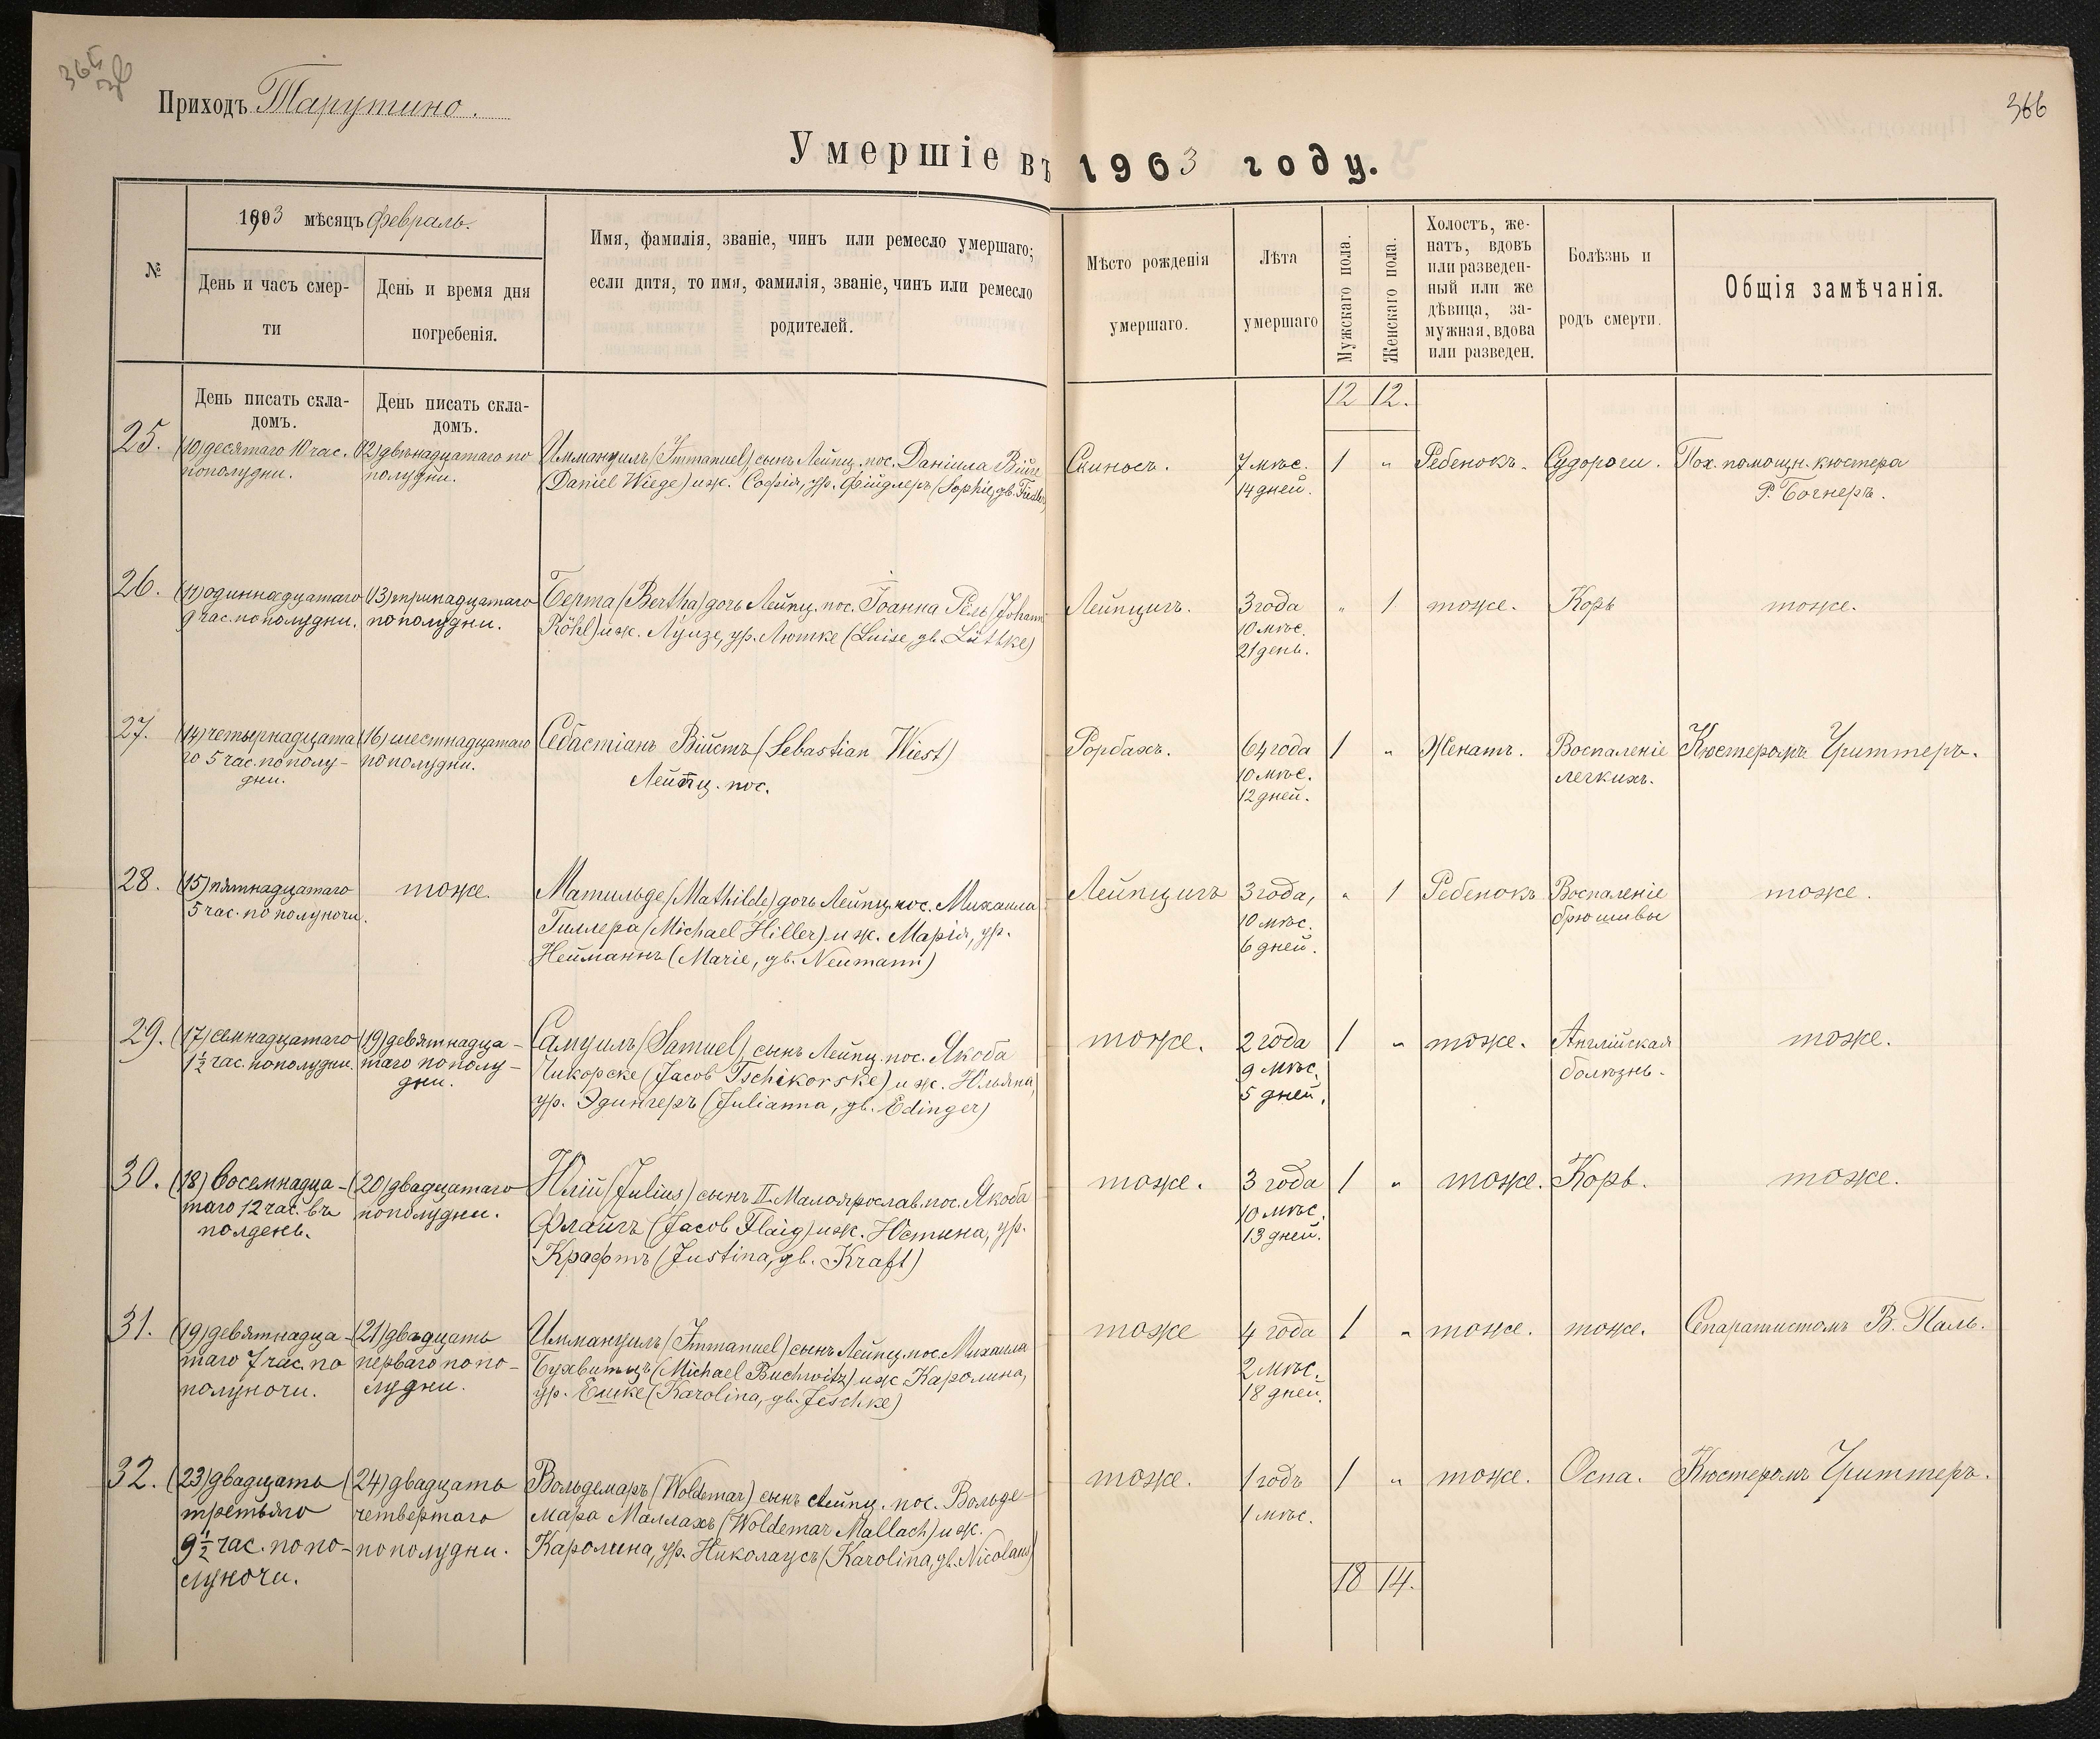 366
Приходъ Тарутино.
Умершіе въ 1903 году.
№
1903 мѣсяцъ февраль.
День и часъ смер-
ти
День и время дня
погребенія.
Имя, фамилія, званіе, чинъ или ремесло умершаго;
если дитя, то имя, фамилія, званіе, чинъ или ремесло
родителей.
Мѣсто рожденія
умершаго.
Лѣта
умершаго
Мужскаго пола.
Женскаго пола.
Холостъ, же-
натъ, вдовъ
или разведен-
ный или же
дѣвица, за-
мужная, вдова
или разведен.
Болѣзнь и
родъ смерти.
Общія замѣчанія.
День писать скла-
домъ.
День писать скла-
домъ.
12 12.
25.
(10) десятаго 10 час.
пополудни.
(12) двѣнадцатаго по
полудни.
Иммануилъ (Immanuel) сынъ Лейпц. пос. Даніила Вііге
(Daniel Wiege) и ж. Софія, ур. Фійдлеръ (Sophie, gb. Fiedler)
Скиносъ.
7 мѣс.
14 дней.
1 "
Ребенокъ.
Судороги.
Пох. помощн. кюстера
Р. Богнеръ.
26.
(11) одиннадцатаго
9 час. по полудни.
(13) тринадцатаго
пополудни.
Берта (Bertha) дочь Лейпц. пос. Іоанна Рель (Johann
Röhl) и ж. Луизе, ур. Лютке (Luise, gb. Lüttke)
Лейпцигъ.
3 года
10 мѣс.
21 день.
" 1
тоже.
Корь
тоже.
27.
(14) четырнадцата
го 5 час. пополу-
дни.
(16) шестнадцатаго
пополудни.
Себастіанъ Війстъ (Sebastian Wiest)
Лейпц. пос.
Рорбахъ.
64 года
10 мѣс.
12 дней.
1 "
Женатъ.
Воспаленіе
легкихъ.
Кюстеромъ Циттеръ.
28.
(15) пятнадцатаго
5 час. по полуночи.
тоже.
Матильде (Mathilde) дочь Лейпц. пос. Михаила
Гиллера (Michael Hiller) и ж. Марія, ур.
Нейманнъ (Marie, gb. Neumann)
Лейпцигъ
3 года,
10 мѣс.
6 дней.
" 1
Ребенокъ
Воспаленіе
брюшины
тоже.
29.
(17) семнадцатаго
1 1/2 час. пополудни.
(19) девятнадца-
таго пополу-
дни.
Самуилъ (Samuel) сынъ Лейпц. пос. Якоба
Чикорске (Jacob Tschikorske) и ж. Юльяна,
ур. Эдингеръ (Julianna, gb. Edinger)
тоже.
2 года
9 мѣс.
5 дней.
1 "
тоже.
Англійская
болѣзнь.
тоже.
30.
(18) восемнадца-
таго 12 час. въ
полдень.
(20) двадцатаго
пополудни.
Юлій (Julius) сынъ II Малоярослав. пос. Якоба
Флайгъ (Jacob Flaig) и ж. Юстина, ур.
Крафтъ (Justina, gb. Kraft)
тоже.
3 года
10 мѣс.
13 дней.
1 "
тоже.
Корь.
тоже.
31.
(19) девятнадца-
таго 7 час. по
полуночи.
(21) двадцать
перваго попо-
лудни.
Иммануилъ (Immanuel) сынъ Лейпц. пос. Михаила
Бухвитцъ (Michael Buchwitz) и ж Каролина,
ур. Ешке (Karolina, gb. Jeschke)
тоже
4 года
2 мѣс.
18 дней.
1 "
тоже.
тоже.
Сепаратистомъ В. Паль.
32.
(23) двадцать
третьяго
9 1/2 час. попо-
луночи.
(24) двадцать
четвертаго
пополудни.
Вольдемаръ (Woldemar) сынъ Лейпц. пос. Вольде-
мара Маллахъ (Woldemar Mallach) и ж.
Каролина, ур. Николаусъ (Karolina, gb. Nicolaus)
тоже.
1 годъ
1 мѣс.
1 "
тоже.
Оспа.
Кюстеромъ Циттеръ.
18 14.